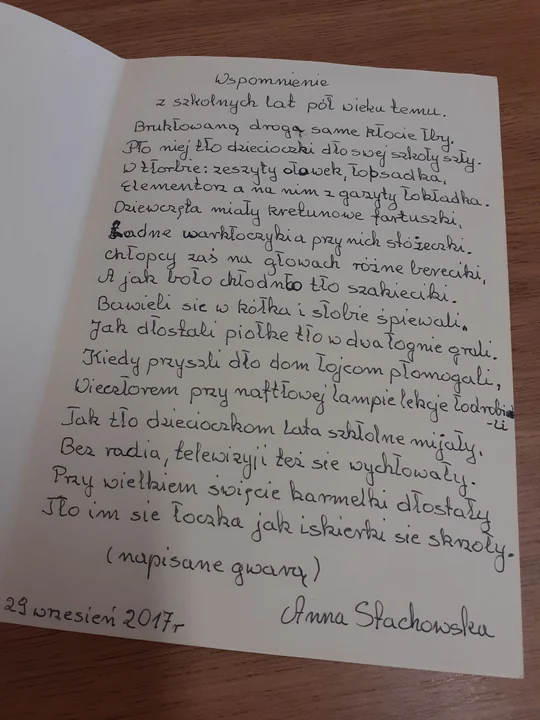 Wspomnienie
z szkolnych lat pół wieku temu.
Brukłowaną drogą same kłocie łby.
Pło niej tło dziecioczki dło swej szkoły szły.
W tłorbie: zeszyty ołowek, łobsadka,
Elementorz a na nim z gazyty łokładka.
Dziewczęta miały kretunowe fartuszki,
Ładne warkłoczyki a przy nich stóżeczki.
chłopcy zaś na głowach różne bereciki,
A jak boło chłodnło tło szakieciki.
Bawieli sie w kółka i słobie śpiewali.
Jak dłostali piołke tło w dwa łognie grali.
Kiedy przyszli dło dom łojcom płomogali,
Wieczłorem przy naftłowej lampie lekcje łodrobia
-li
Jak tło dziecioczkom lata szkłolne mijały.
Bez radia, telewizyji też sie wychłowały.
Przy wielkiem święcie karmelki dłostały
Tło im sie łoczka jak iskierki sie skrzoły.
(napisane gwarą)
29 wrzesień 2017r
Anna Stachowska